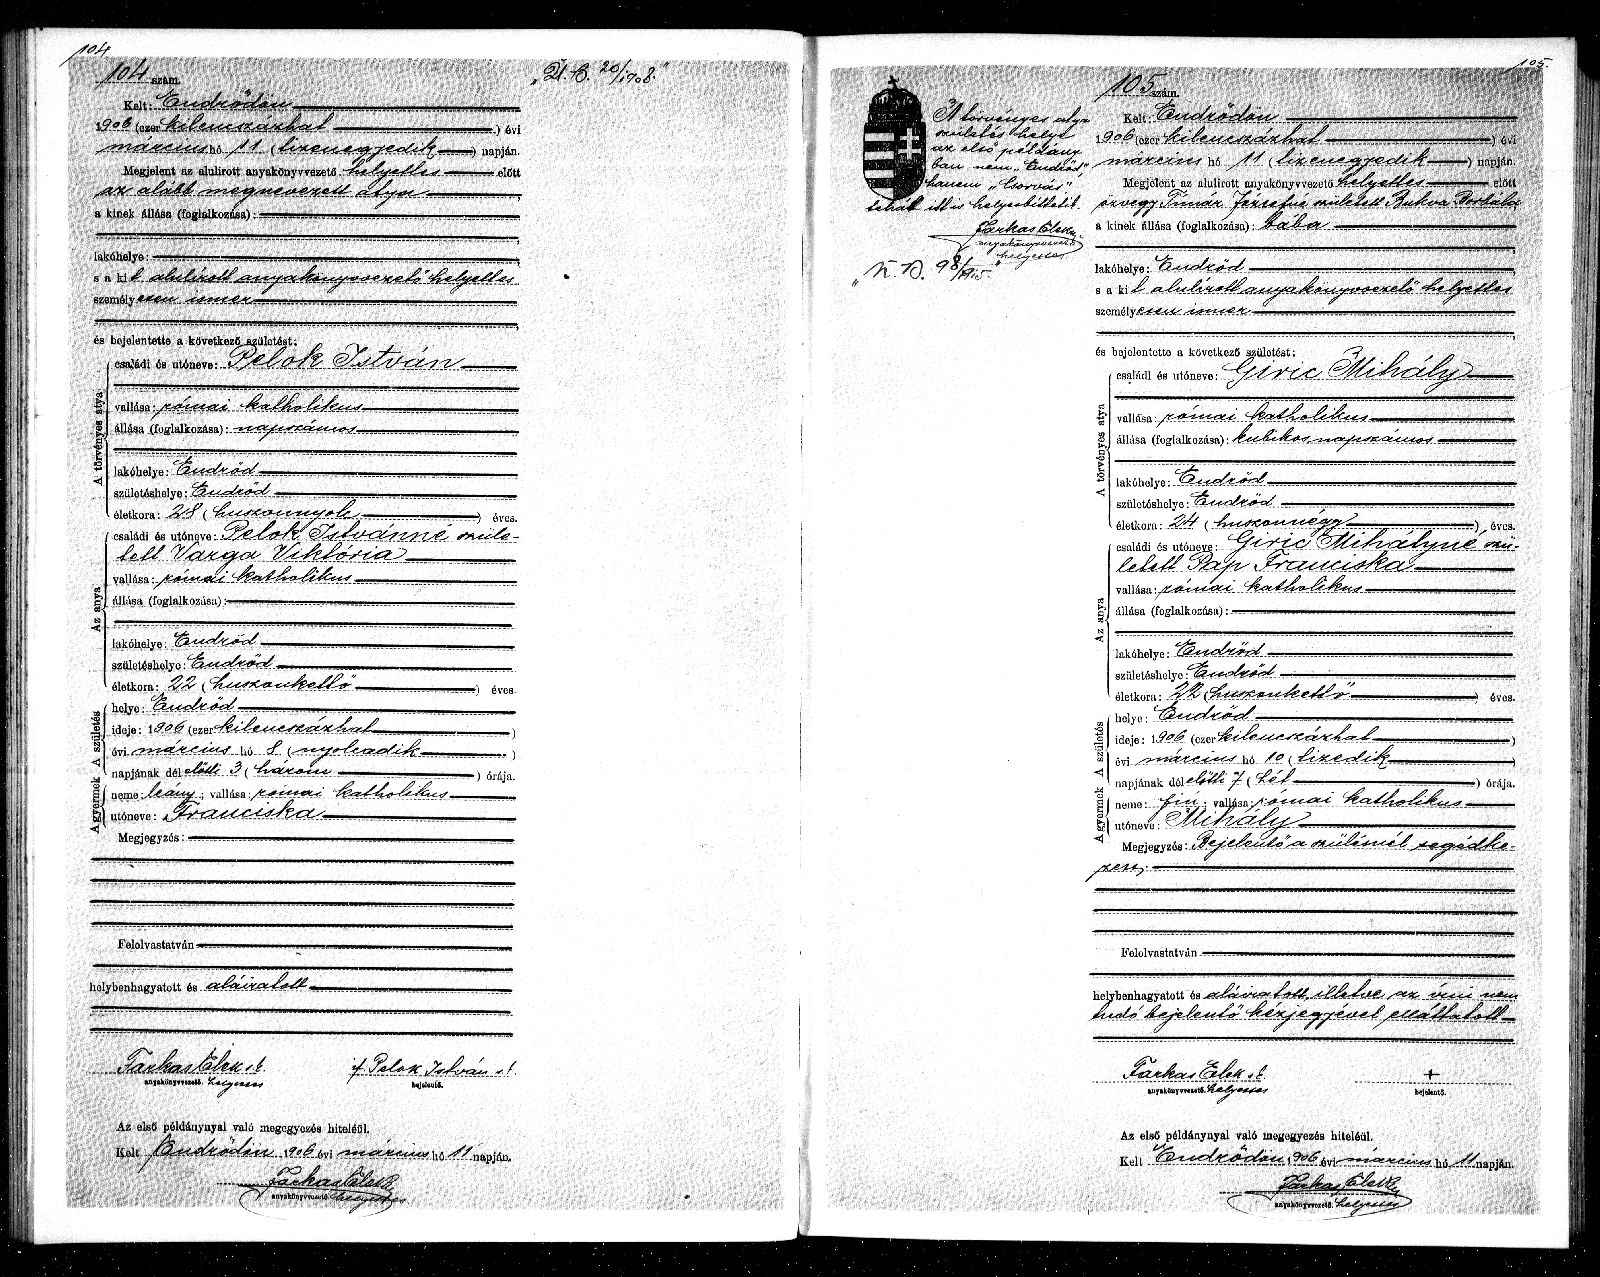 104
104 szám.
„U. B. 20/1908."
Kelt: Endrődön
1906 (ezer kilenczázhat ) évi
március hó 11 (tizenegyedik ) napján.
Megjelent az alulirott anyakönyvvezető helyettes előtt
az alább megnevezett atya
a kinek állása (foglalkozása):
lakóhelye:
s a kit alulírott anyakönyvvezető helyettes
személyesen ismer
és bejelentette a következő születést:
A törvényes atya
családi és utóneve: Pelok István
vallása: római katholikus
állása (foglalkozása): napszámos
lakóhelye: Endrőd
születéshelye: Endrőd
életkora: 28 (huszonnyolc ) éves.
Az anya
családi és utóneve: Pelok Istvánné szüle-
tett Varga Viktória
vallása: római katholikus
állása (foglalkozása):
lakóhelye: Endrőd
születéshelye: Endrőd
életkora: 22 (huszonkettő ) éves.
A gyermek A születés
helye: Endrőd
ideje: 1906 (ezer kilencszázhat )
évi március hó 8 (nyolcadik )
napjának dél előtti 3 (három ) órája.
neme: leány; vallása: római katholikus
utóneve: Franciska
Megjegyzés:
Felolvastatván
helybenhagyatott és aláiratott
Farkas Elek s.k. if Pelok István s.k.
anyakönyvvezető. helyettes bejelentő.
Az első példánynyal való megegyezés hiteléül.
Kelt Endrődön, 1906 évi március hó 11 napján.
Farkas Elek
anyakönyvvezető. helyettes
105.
105 szám.
A törvényes atya
születés helye
az első példány-
ban nem „Endrőd",
hanem „Csorvás"
tehát itt is helyesbittetik.
Farkas Elek
anyakönyvvezető
helyettes
„K. B. 98/1915."
Kelt: Endrődön
1906 (ezer kilencszázhat ) évi
március hó 11 (tizenegyedik ) napján.
Megjelent az alulirott anyakönyvvezető helyettes előtt
özvegy Timár Józsefné született Bukva Borbála
a kinek állása (foglalkozása): bába
lakóhelye: Endrőd
s a kit alulírott anyakönyvvezető helyettes
személyesen ismer
és bejelentette a következő születést:
A törvényes atya
családi és utóneve: Giric Mihály
vallása: római katholikus
állása (foglalkozása): kubikos napszámos
lakóhelye: Endrőd
születéshelye: Endrőd
életkora: 24 (huszonnégy ) éves.
Az anya
családi és utóneve: Giric Mihályné szü-
letett Pap Franciska
vallása: római katholikus
állása (foglalkozása):
lakóhelye: Endrőd
születéshelye: Endrőd
életkora: 22 (huszonkettő ) éves.
A gyermek A születés
helye: Endrőd
ideje: 1906 (ezer kilencszázhat )
évi március hó 10 (tizedik )
napjának dél előtti 7 (hét ) órája.
neme: fiu; vallása: római katholikus
utóneve: Mihály
Megjegyzés: Bejelentő a szülésnél segédke-
zett;
Felolvastatván
helybenhagyatott és aláiratott, illetve az irni nem
tudó bejelentő kézjegyével elláttatott
Farkas Elek s.k. +
anyakönyvvezető. helyettes bejelentő.
Az első példánynyal való megegyezés hiteléül.
Kelt Endrődön, 1906 évi március hó 11 napján.
Farkas Elek
anyakönyvvezető. helyettes